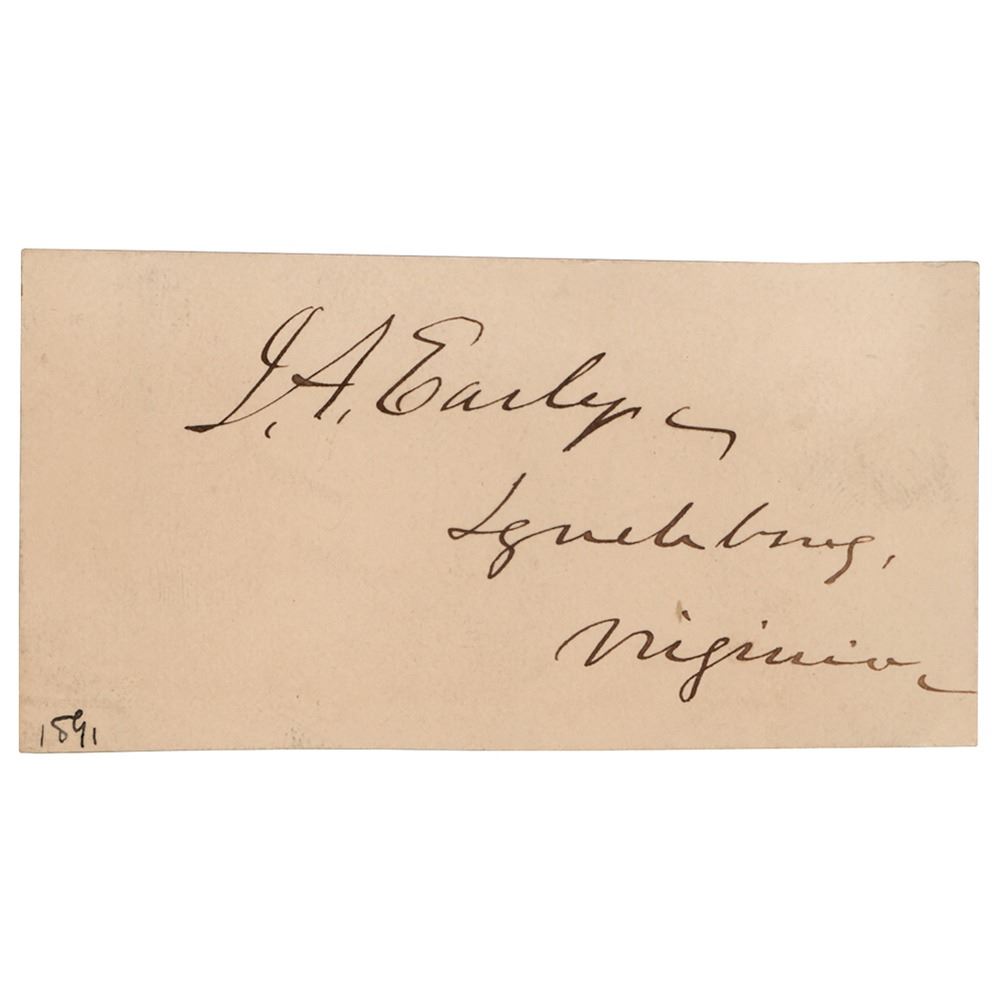 J. A. Early
Lynchburg,
Virginia
1891